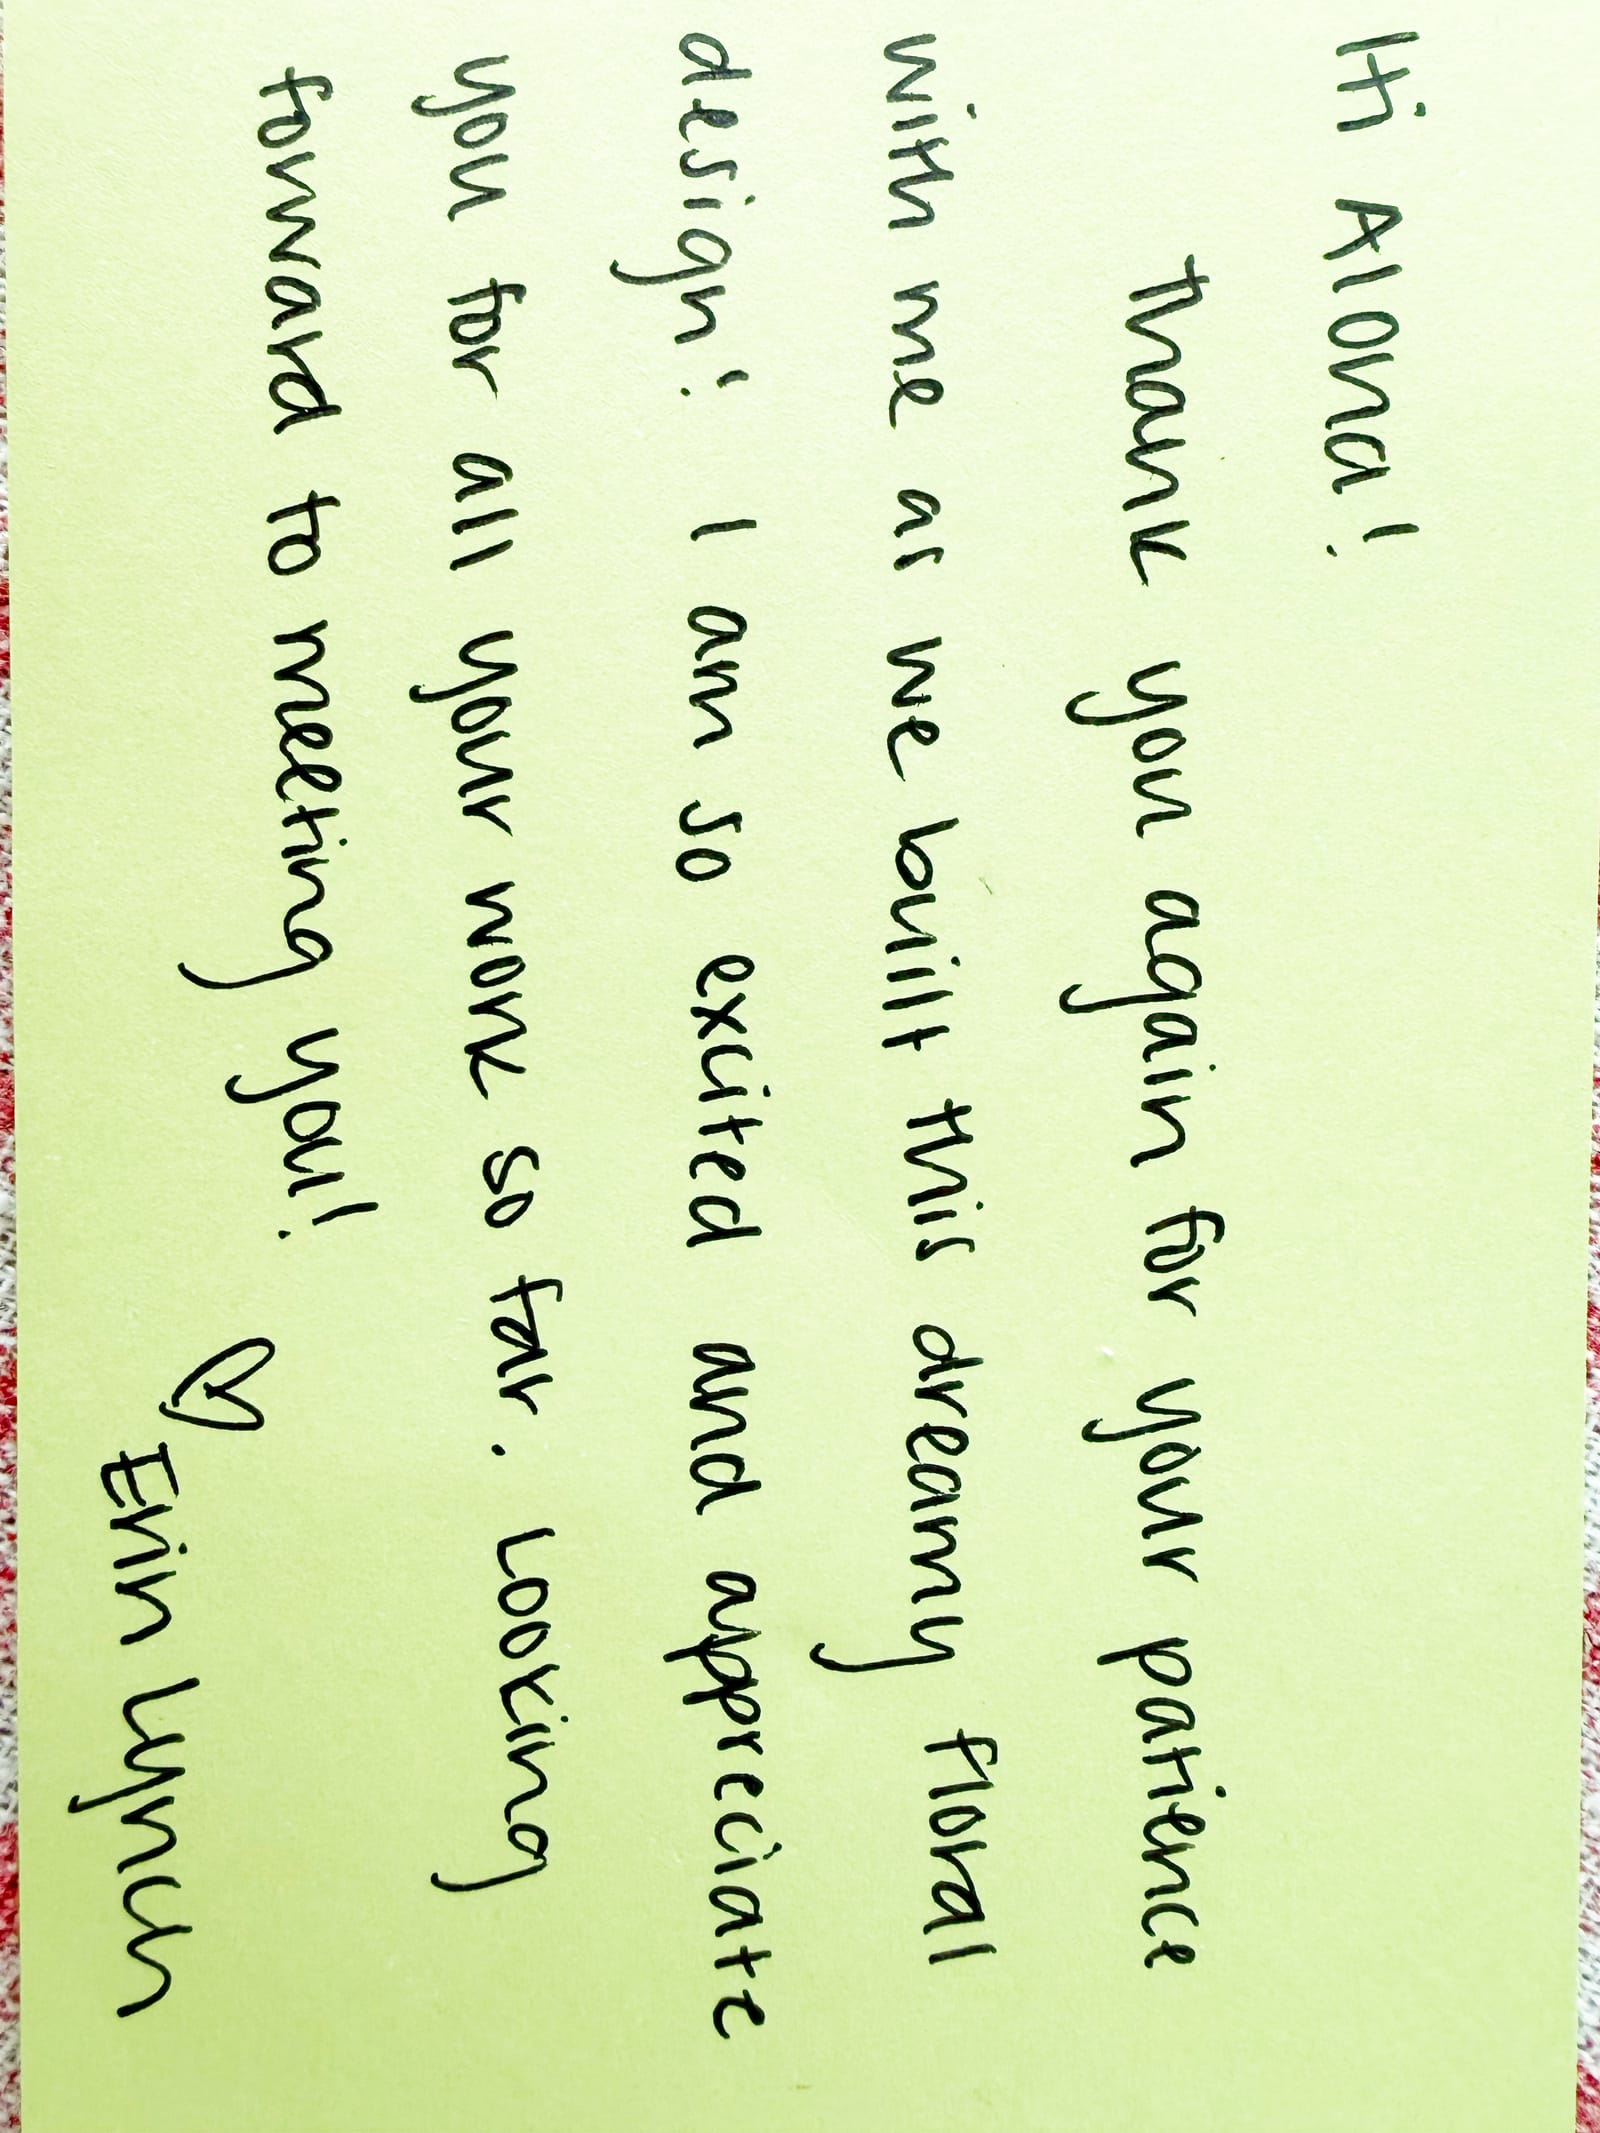 Hi Alona!
Thank you again for your patience
with me as we built this dreamy floral
design! I am so excited and appreciate
you for all your work so far. Looking
forward to meeting you!
♡ Erin Lynch